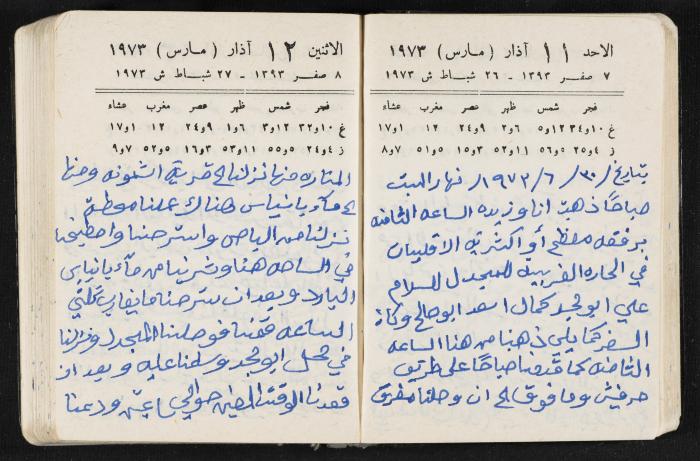 الاحد ١١ آذار ( مارس ) ١٩٧٣
٧ صفر ١٣٩٣ - ٢٦ شباط ش ١٩٧٣
فجر شمس ظهر عصر مغرب عشاء
غ ١٠و٣٤ ١٢و٥ ٦و٢ ٩و٢٤ ١٢ ١و١٧
ز ٤و٢٥ ٥و٥٦ ١١و٥٢ ٣و١٥ ٥و٥١ ٧و٨
بتاريخ / ٣٠ / ٦ / ١٩٧٣ / نهار السبت
صباحًا ذهبت انا وزيده الساعه الثامنه
برفقه أو أكثرية الاقليبات
في الحاره الغربيه للمجدل للسلام
علي ابو مجد كمال اسعد ابو صالح وكان
السفر كما يلي ذهبنا من هنا الساعه
الثامنه كما قدمنا صباحًا على طريق
حرفيش وما فوق الى ان وصلنا مفرق
الاثنين ١٢ آذار ( مارس ) ١٩٧٣
٨ صفر ١٣٩٣ - ٢٧ شباط ش ١٩٧٣
فجر شمس ظهر عصر مغرب عشاء
غ ١٠و٣٢ ١٢و٣ ٦و١ ٩و٢٤ ١٢ ١و١٧
ز ٤و٢٤ ٥و٥٥ ١١و٥٣ ٣و١٦ ٥و٥٢ ٧و٩
المناره منها نزلنا الى قرية الشمونه ومنها
الى ماء بانياس هناك عملنا محطه
نزلنا من الباص واسترحنا
في الساحه هنا وشربنا من مآء بانياس
البارد وبعد ان استرحنا ما يقارب ثلثي
الساعه قمنا فوصلنا المجدل ونزلنا
في محل ابو مجد وسلمنا عليه وبعد ان
قعدنا الوقت حوالي ودعنا